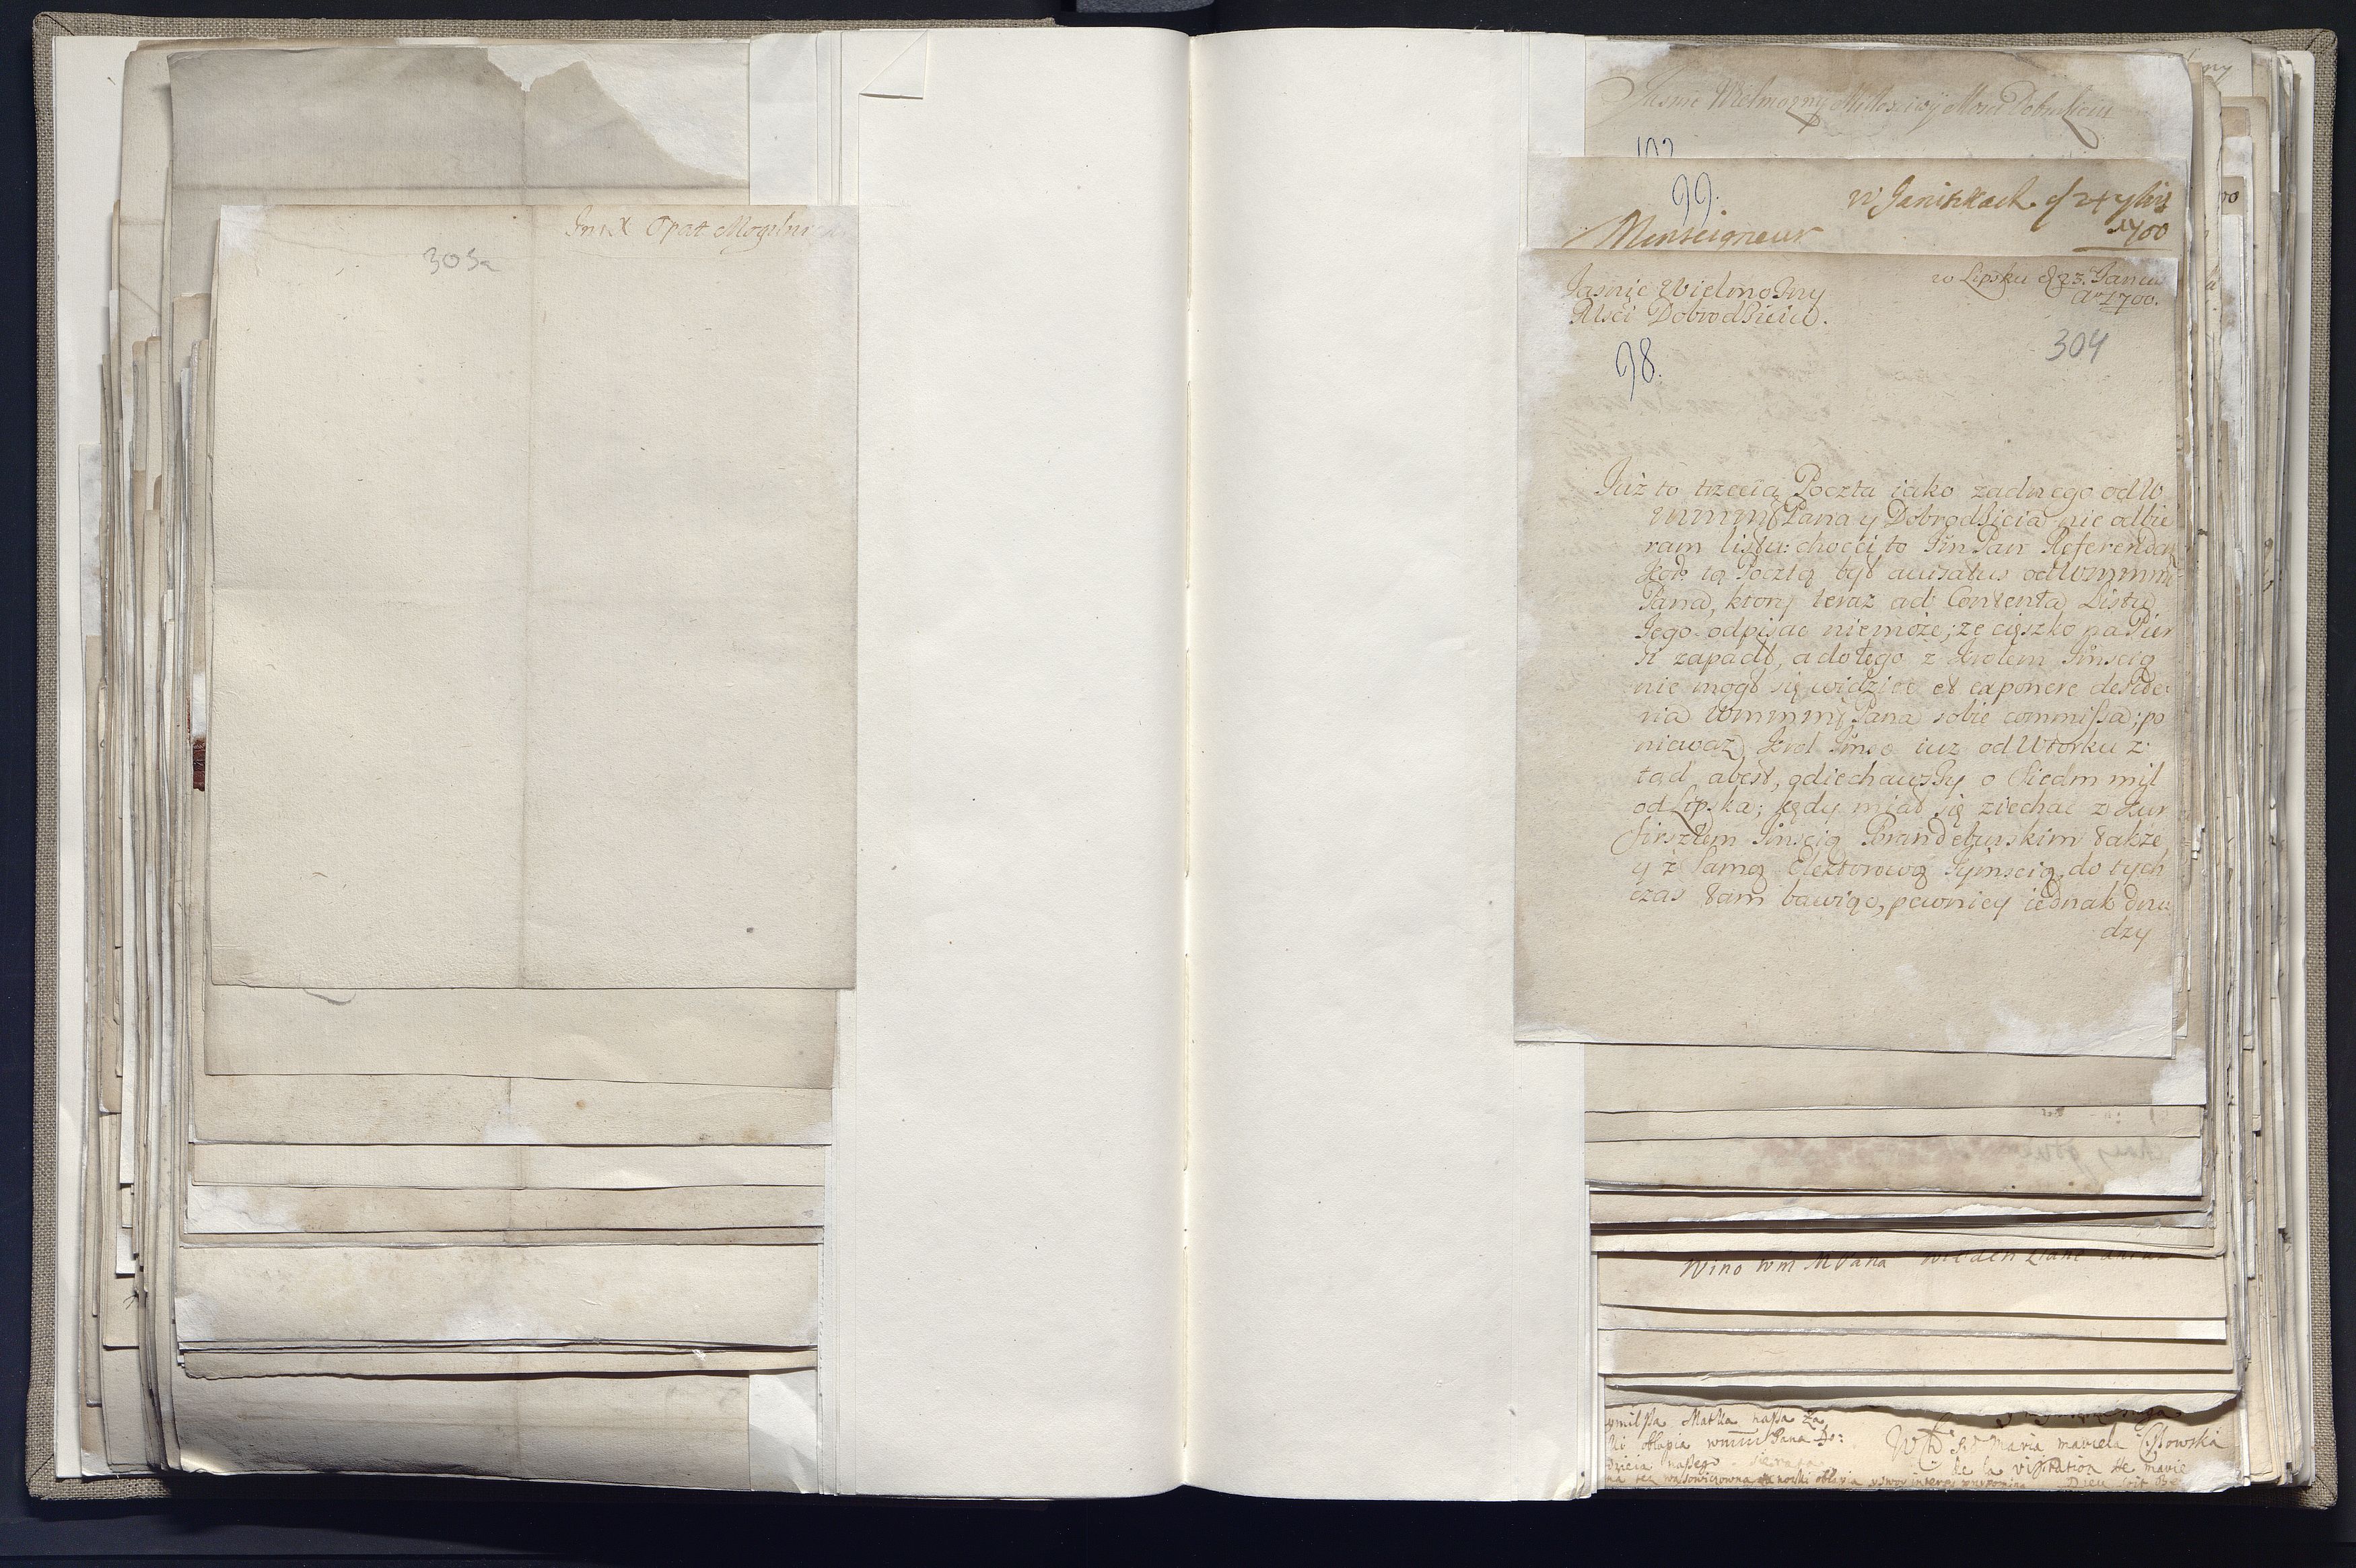 JmX Opat Mogilnicki
303a
Jasnie Wielmozny Miłosciwy Mosci Dobrodzieiu
99.
w Janiszkach d 24 7bris
1700
Monseigneur
w Lipsku d 23. Januar
Aᵒ 1700.
Jasnie Wielmozny
Msci Dobrodzieiu.
304
98.
Już to trzecia Poczta iako zadnego od W
mmmsc Pana y Dobrodzieia nie odbie
ram listu: chocci to Jm Pan Referendarz
Kor: tą Pocztą był auisatus od Wmmm
Pana, ktory teraz ad Contenta Listu
Jego odpisac niemoże; ze cięszko na Pier
si zapadł, a do tego z Krolem Jmscią
nie mogł się widziec et exponere deside:
ria Wmmmsc Pana sobie commissa; po
niewaz Krol Jmsc iuz od Wtorku z
tąd abest, odiechawszy o siedm mil
od Lipska; kędy miał się ziechac z Kur
firsztem Jmscią Brandeburskim także
y z samą Elektorową Jeymscią, do tych
czas tam bawiąc, pewniey iednak dru
dzy
Wino wm MPana
ymilsza Matka nassa Za
obłapia wmm Pana Do:
dzieia nassego
Maria
de la visitation de marie
Dieu soit